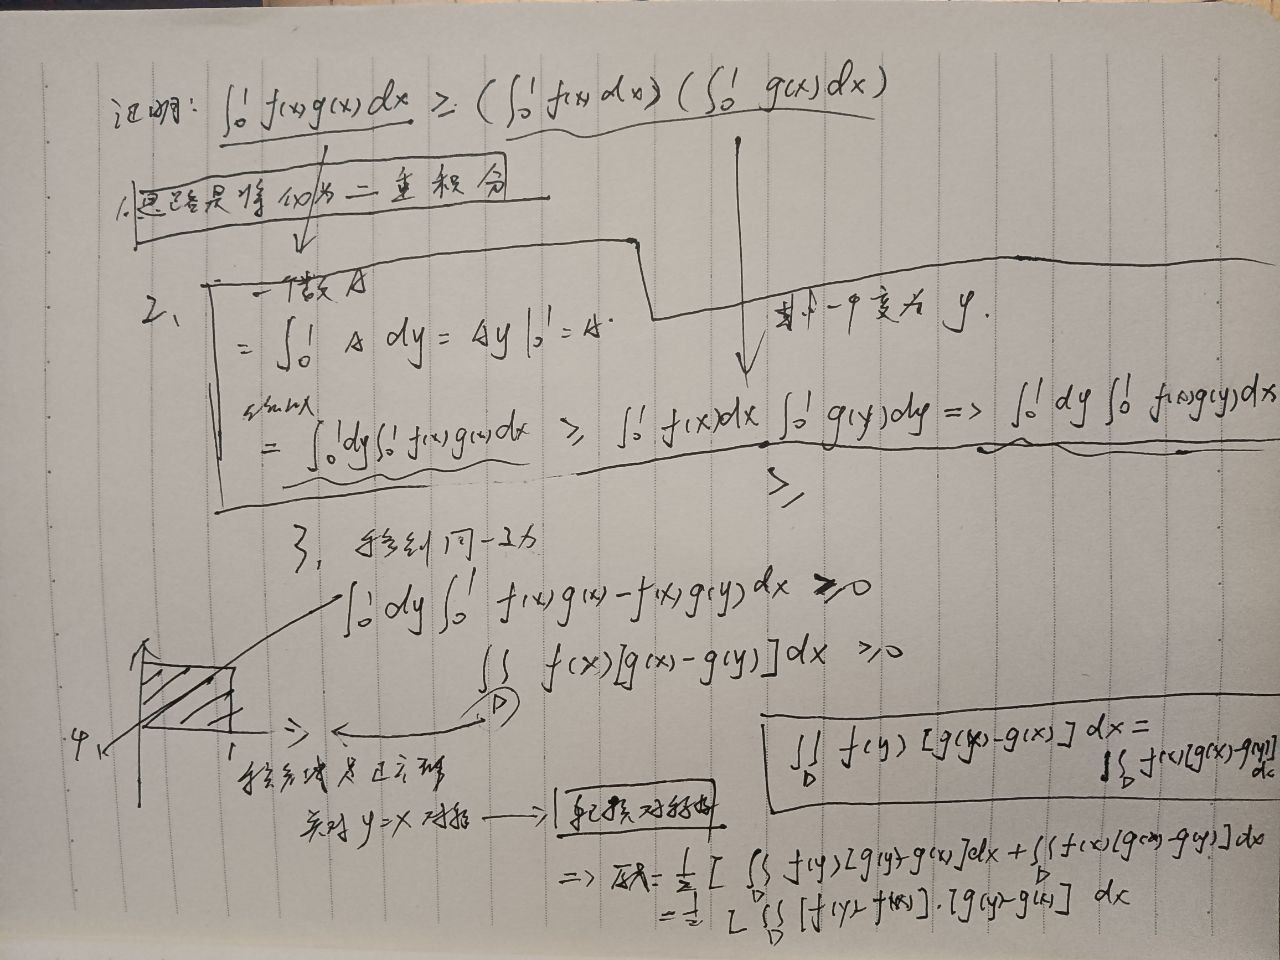 证明: ∫₀¹ f(x)g(x)dx ≥ (∫₀¹ f(x)dx)(∫₀¹ g(x)dx)
1. 思路是将 化为二重积分
2、 一个数 A
= ∫₀¹ A dy = Ay|₀¹ = A
其中一个变为 y.
= ∫₀¹dy∫₀¹ f(x)g(x)dx ≥ ∫₀¹ f(x)dx ∫₀¹ g(y)dy => ∫₀¹ dy ∫₀¹ f(x)g(y)dx
≥
3. 移到同一边为
∫₀¹ dy ∫₀¹ f(x)g(x)-f(x)g(y)dx ≥0
∬_D f(x)[g(x)-g(y)]dx ≥0
4、 1 => 积分域是正方形
关于 y=x 对称 → 轮换对称性
∬_D f(y)[g(y)-g(x)]dx =
∬_D f(x)[g(x)-g(y)]dx
=> 原式= ½ [∬_D f(y)[g(y)-g(x)]dx + ∬_D f(x)[g(x)-g(y)]dx
= ½ [∬_D [f(y)-f(x)].[g(y)-g(x)] dx